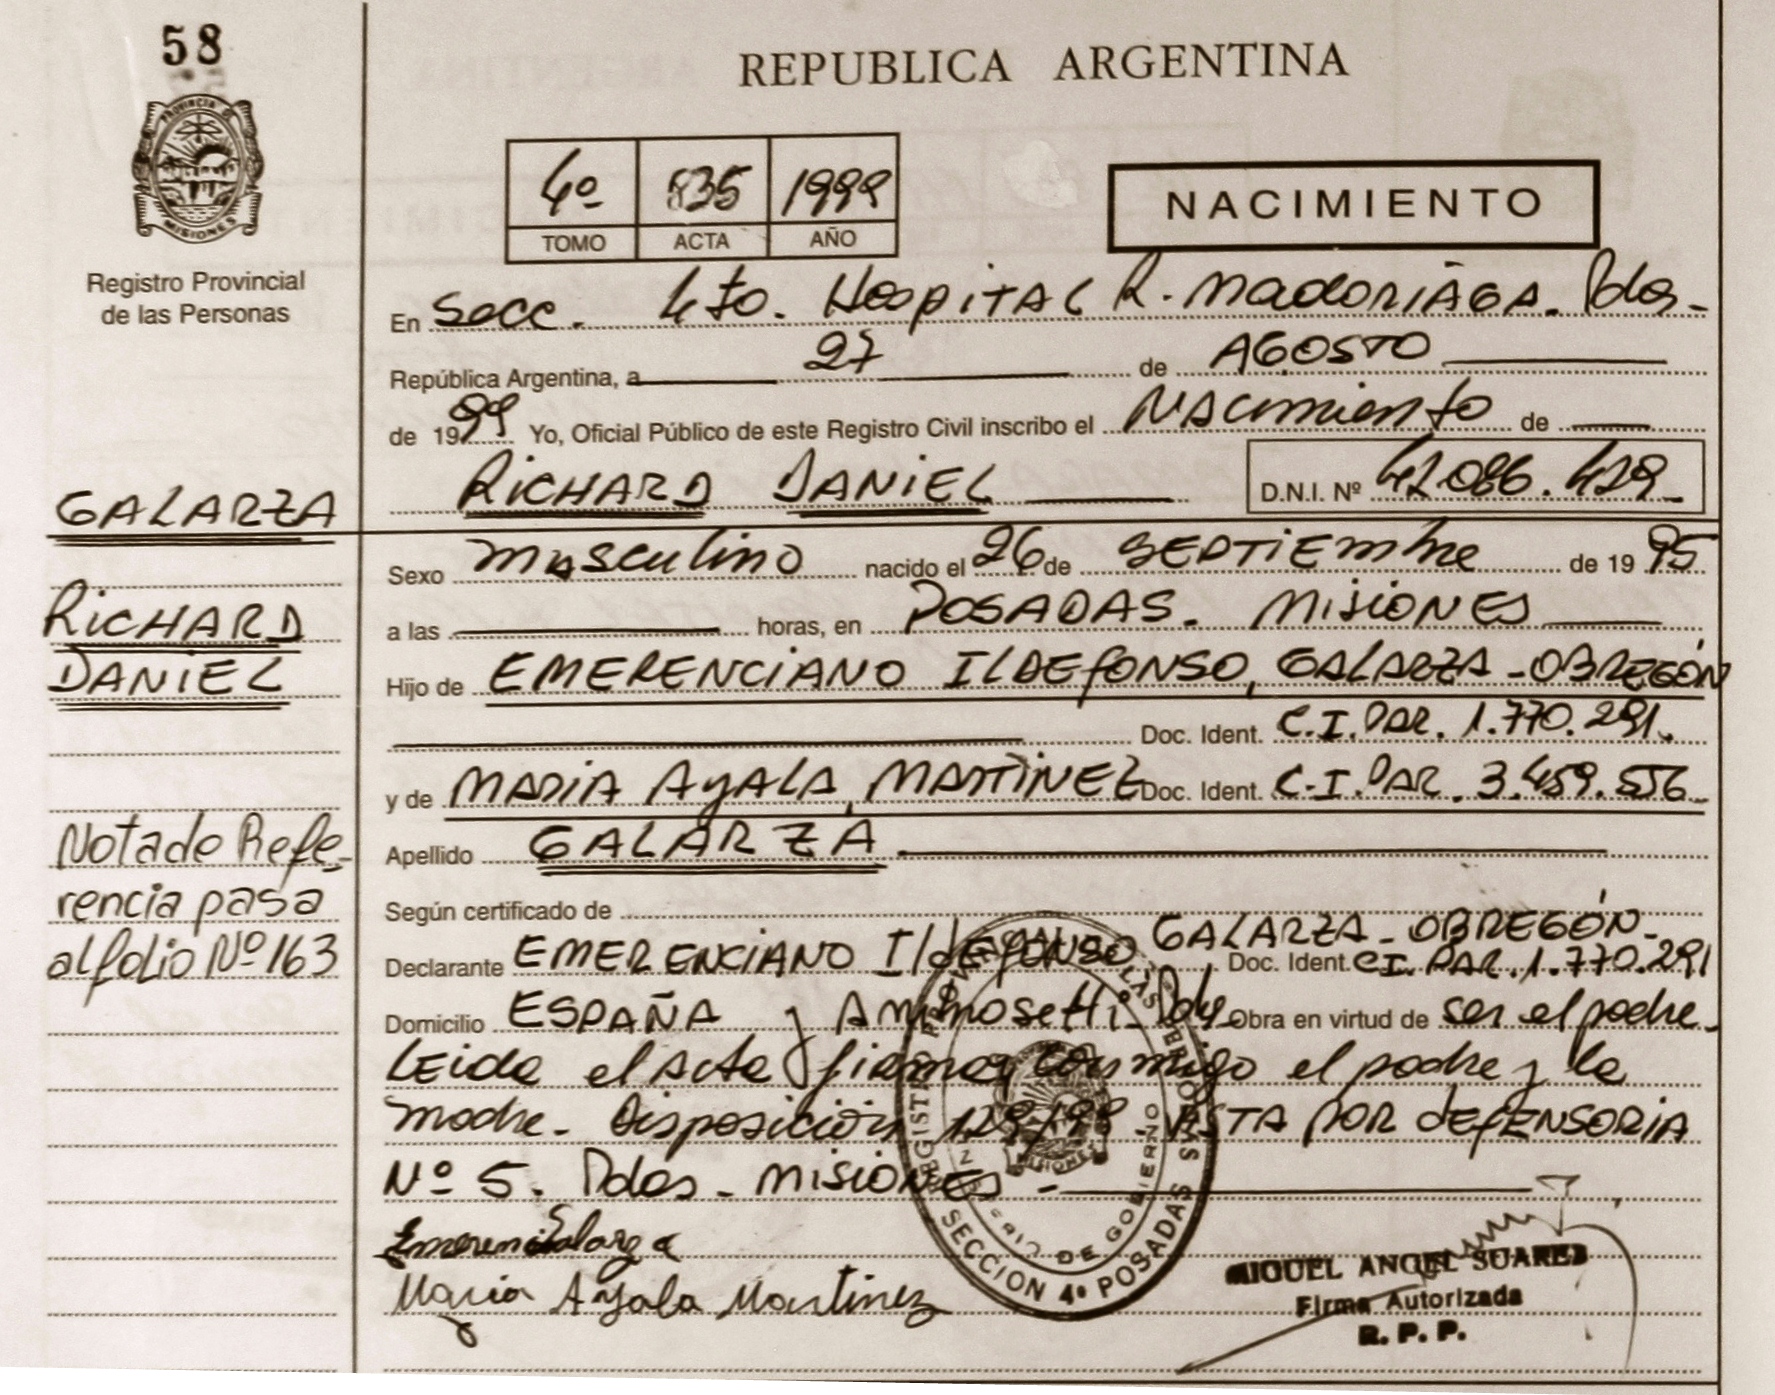 58
REPUBLICA ARGENTINA
PROVINCIA DE
MISIONES
Registro Provincial
de las Personas
4º 835 1999
TOMO ACTA AÑO
NACIMIENTO
En Secc. 4to. Hospital R. Madariaga. Pdas.
República Argentina, a 27 de AGOSTO
de 1999 Yo, Oficial Público de este Registro Civil inscribo el Nacimiento de
RICHARD DANIEL D.N.I. Nº 42.086.429
GALARZA
Sexo masculino nacido el 26 de SEPTIEMbre de 1995
RICHARD
DANIEL
a las horas, en POSADAS. MISIONES
Hijo de EMERENCIANO ILDEFONSO, GALARZA - OBREGÓN
Doc. Ident. C.I. PAR. 1.770.291.
y de MARIA AYALA, MARTINEZ Doc. Ident. C.I. PAR. 3.459.556
Apellido GALARZA
Nota de Refe-
rencia pasa
al folio Nº 163
Según certificado de
Declarante EMERENCIANO IldEfONSO GALARZA - OBREGÓN - Doc. Ident. C.I. PAR. 1.770.291
Domicilio ESPAÑA y Obra en virtud de ser el padre.
Leida el Acta firman conmigo el padre y la
madre. Disposición 129/99. VISTA POR dEfENSORIA
Nº 5. Pdas. MISIONES -
María Ayala Martinez
DE GOBIERNO
SECCION 4º POSADAS
MIGUEL ANGEL SUAREZ
Firma Autorizada
R. P. P.